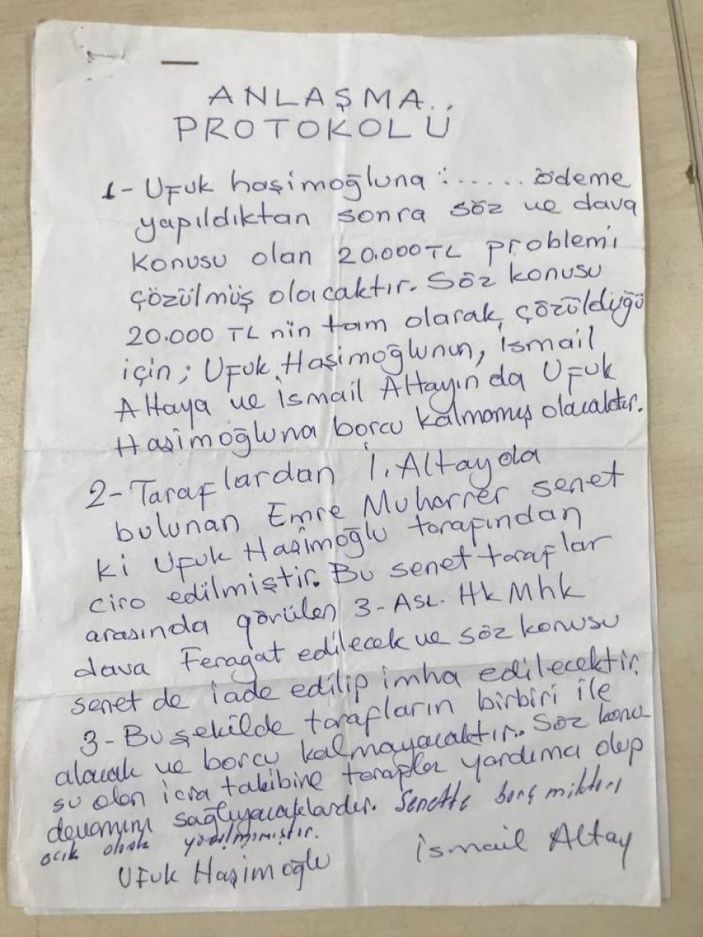 ANLAŞMA
PROTOKOLÜ
1- Ufuk haşimoğluna :...... ödeme
yapıldıktan sonra söz ve dava
konusu olan 20.000 TL problemi
çözülmüş olacaktır. Söz konusu
20.000 TL nin tam olarak, çözüldüğü
için; Ufuk Haşimoğlunun, İsmail
Altaya ve İsmail Altayın da Ufuk
Haşimoğluna borcu kalmamış olacaktır.
2- Taraflardan İ. Altayda
bulunan Emre Muharrer senet
ki Ufuk Haşimoğlu tarafından
ciro edilmiştir. Bu senet taraflar
arasında görülen 3- Asl. Hk Mhk
dava Feragat edilecek ve söz konusu
senet de iade edilip imha edilecektir.
3- Bu şekilde tarafların birbiri ile
alacak ve borcu kalmayacaktır. Söz konu-
su olan icra takibine taraflar yardımcı olup
devamını sağlıyacaklardır. Senette borç miktarı
açık olarak yazılmamıştır.
Ufuk Haşimoğlu İsmail Altay